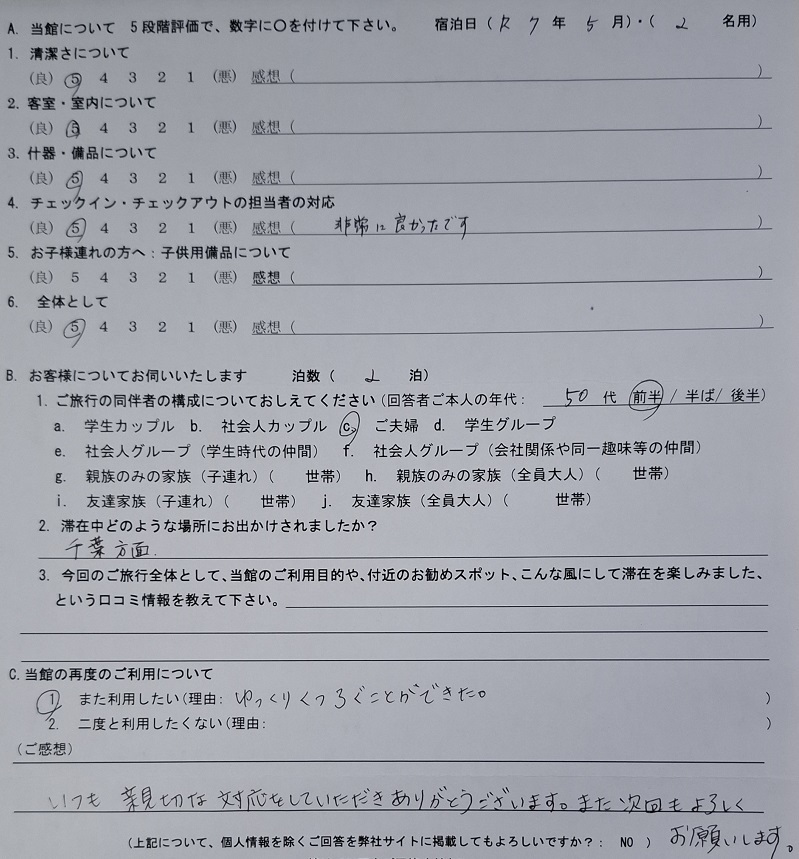 A. 当館について 5段階評価で、数字に〇を付けて下さい。 宿泊日(R 7 年 5 月)・( 2 名用)
1. 清潔さについて
(良) 5 4 3 2 1 (悪) 感想( )
2. 客室・室内について
(良) 5 4 3 2 1 (悪) 感想( )
3. 什器・備品について
(良) 5 4 3 2 1 (悪) 感想( )
4. チェックイン・チェックアウトの担当者の対応
(良) 5 4 3 2 1 (悪) 感想( 非常に良かったです )
5. お子様連れの方へ:子供用備品について
(良) 5 4 3 2 1 (悪) 感想( )
6. 全体として
(良) 5 4 3 2 1 (悪) 感想( )
B. お客様についてお伺いいたします 泊数( 2 泊)
1. ご旅行の同伴者の構成についておしえてください(回答者ご本人の年代: 50 代 前半/半ば/後半)
a. 学生カップル b. 社会人カップル c. ご夫婦 d. 学生グループ
e. 社会人グループ(学生時代の仲間) f. 社会人グループ(会社関係や同一趣味等の仲間)
g. 親族のみの家族(子連れ)( 世帯) h. 親族のみの家族(全員大人)( 世帯)
i. 友達家族(子連れ)( 世帯) j. 友達家族(全員大人)( 世帯)
2. 滞在中どのような場所にお出かけされましたか?
千葉方面.
3. 今回のご旅行全体として、当館のご利用目的や、付近のお勧めスポット、こんな風にして滞在を楽しみました、
という口コミ情報を教えて下さい。
C. 当館の再度のご利用について
1. また利用したい(理由: ゆっくりくつろぐことができた。 )
2. 二度と利用したくない(理由: )
(ご感想)
いつも 親切な対応をしていただきありがとうございます。また次回もよろしく
お願いします。
(上記について、個人情報を除くご回答を弊社サイトに掲載してもよろしいですか?: NO )